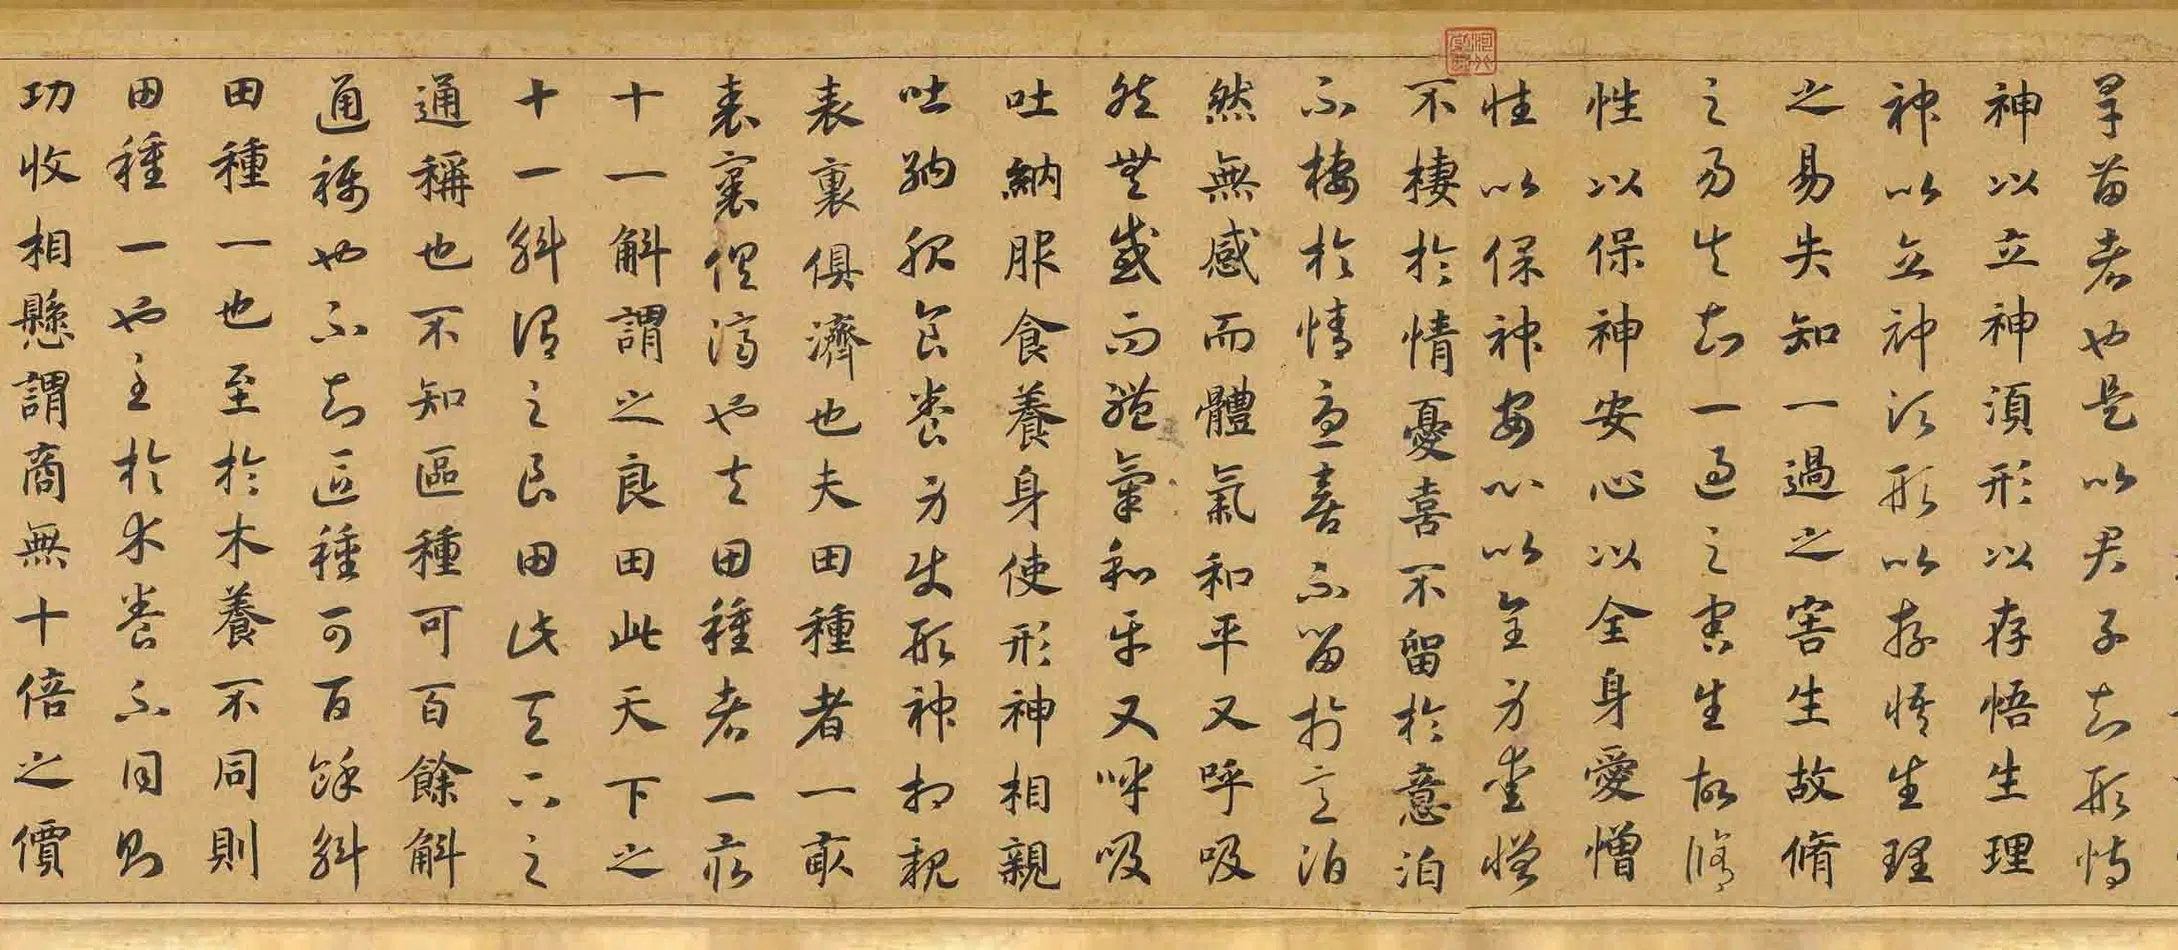 旱苗者也是以君子知形恃
神以立神須形以存悟生理
神以立神須形以存悟生理
之易失知一過之害生故脩
之易失知一過之害生故脩
性以保神安心以全身愛憎
性以保神安心以全身愛憎
不棲於情憂喜不留於意泊
不棲於情憂喜不留於意泊
然無感而體氣和平又呼吸
然無感而體氣和平又呼吸
吐納服食養身使形神相親
吐納服食養身使形神相親
表裏俱濟也夫田種者一畝
表裏俱濟也夫田種者一畝
十一斛謂之良田此天下之
十一斛謂之良田此天下之
通稱也不知區種可百餘斛
通稱也不知區種可百餘斛
田種一也至於木養不同則
田種一也至於木養不同則
功收相懸謂商無十倍之價